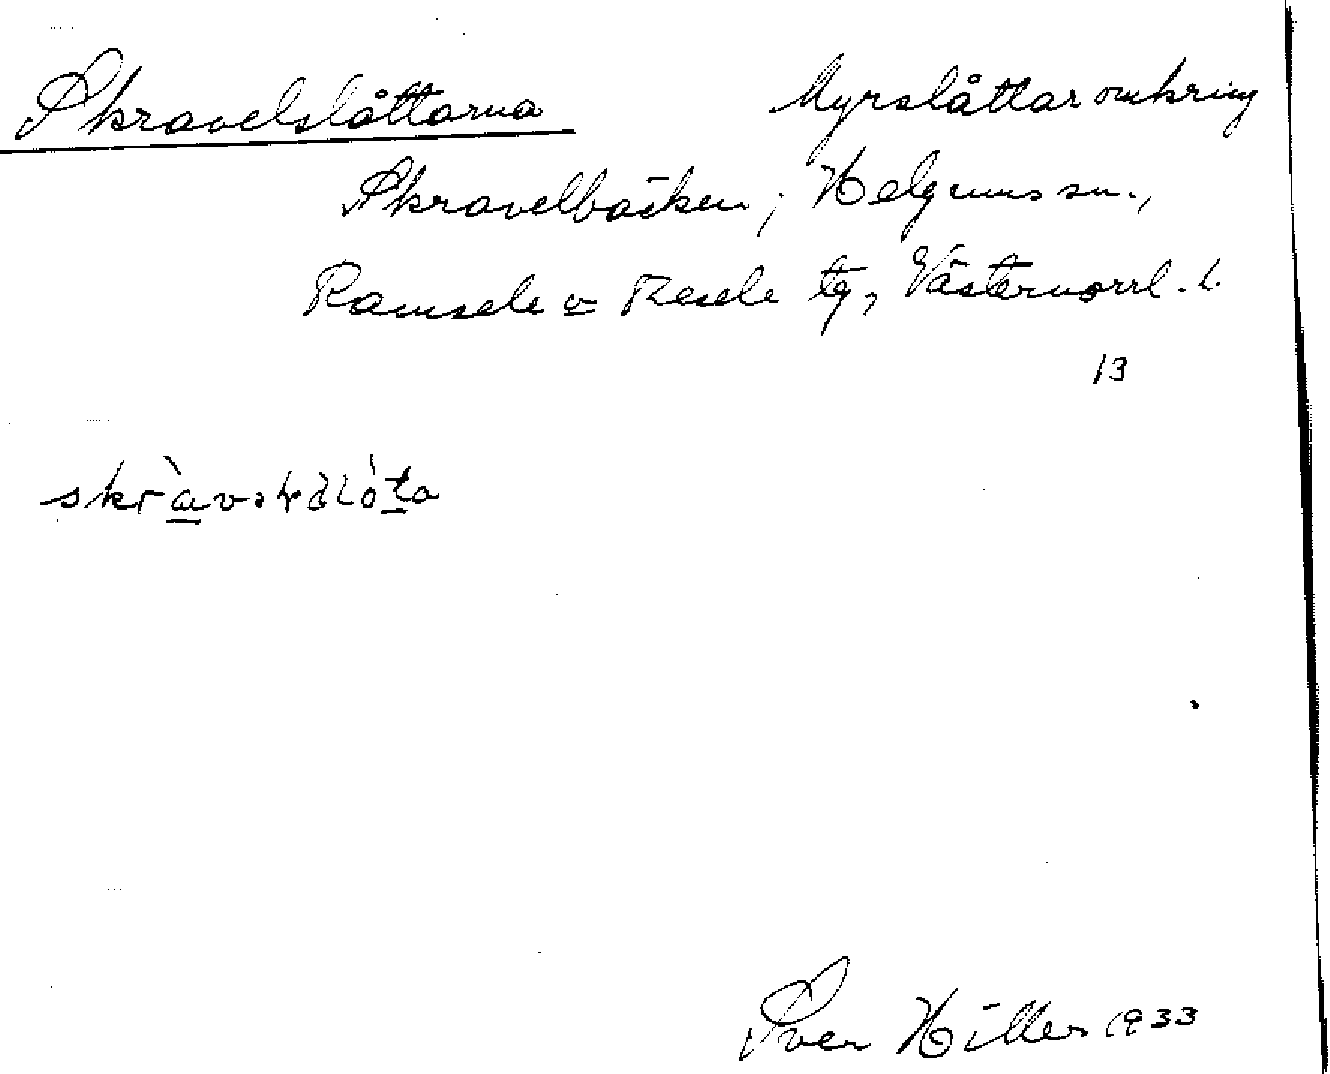 Skravelslåttarna Myrslåttar omkring
Skravelbäcken, Helgums sn.,
Ramsele o Resele tg, Västernorrl. l.
13
Sven Hiller 1933